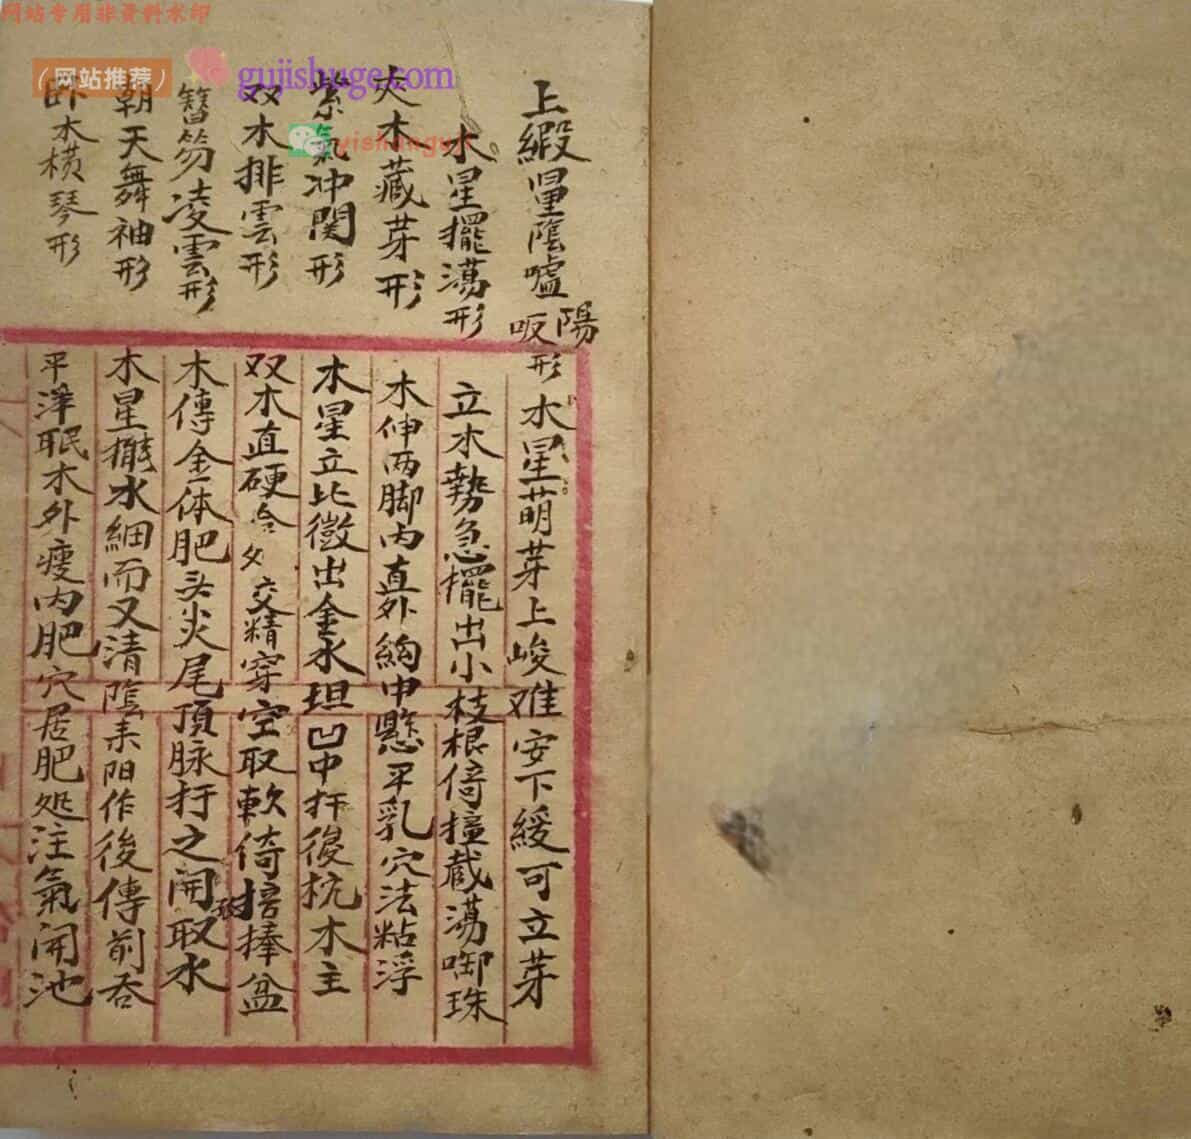 网站专用非资料水印
（网站推荐）
gujishuge.com
yishanguji
上緞量陰噓陽吸形
水星擺蕩形
大木藏芽形
紫氣冲関形
双木排雲形
簪笏凌雲形
朝天舞袖形
卧木横琴形
木星萌芽上峻难安下緩可立芽
立木勢急擺出小枝根倚撞蔵蕩啣珠
木伸两脚内直外鈎中懸平乳穴法粘浮
木星立比微出金水坦凹中扦後枕木主
双木直硬合父交精穿空取軟倚掊捧盆
木傳金体肥头尖尾頂脉扦之開取水
木星擺水細而又清陰来阳作後傳前吞
平洋眠木外瘦内肥穴居肥处注氣開池